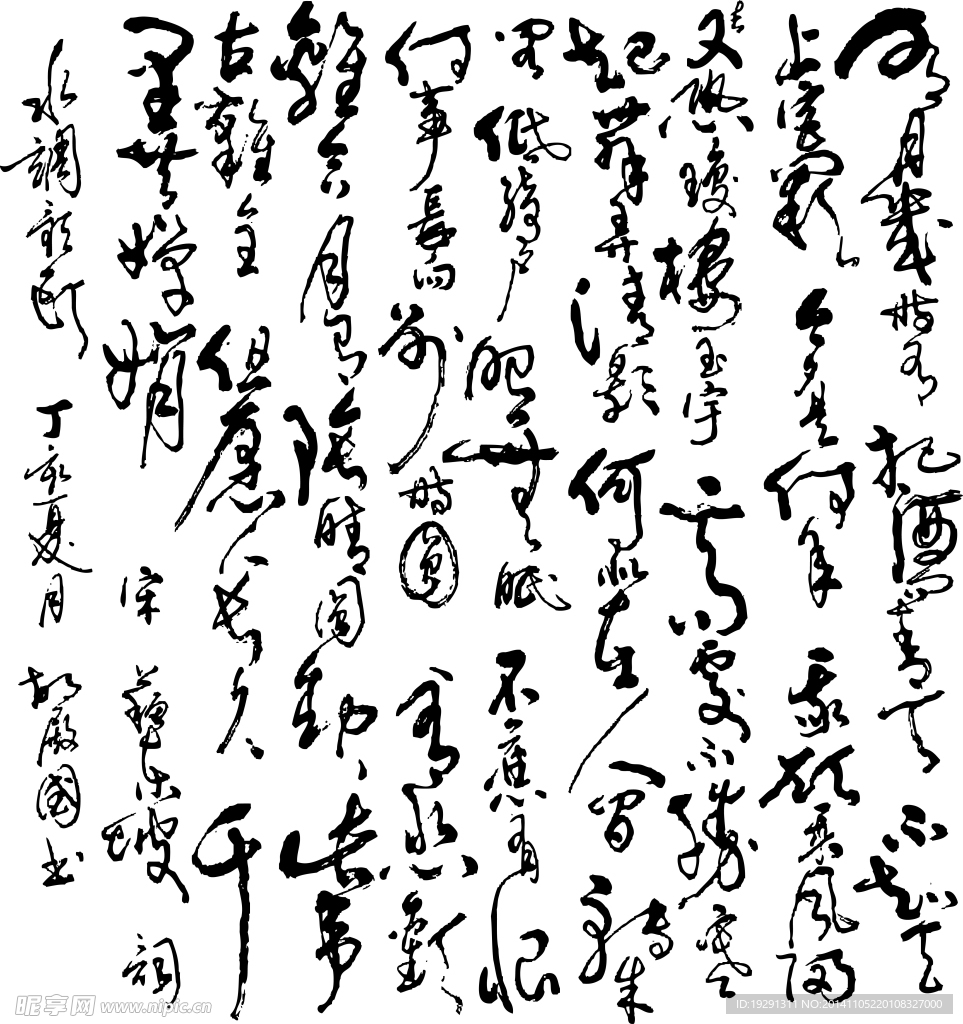 明月幾時有把酒問青天不知天
上宮闕今夕是何年我欲乘風歸
去又恐瓊樓玉宇高處不勝寒
起舞弄清影何似在人間轉朱
閣低綺戶照無眠不應有恨
何事長向別時圓人有悲歡
離合月有陰晴圓缺此事
古難全但願人長久千
里共嬋娟 宋 蘇東坡 詞
水調歌頭 丁亥夏月 胡殿國書
昵享网 www.nipic.cn
ID:19291311 NO:20141105220108327000